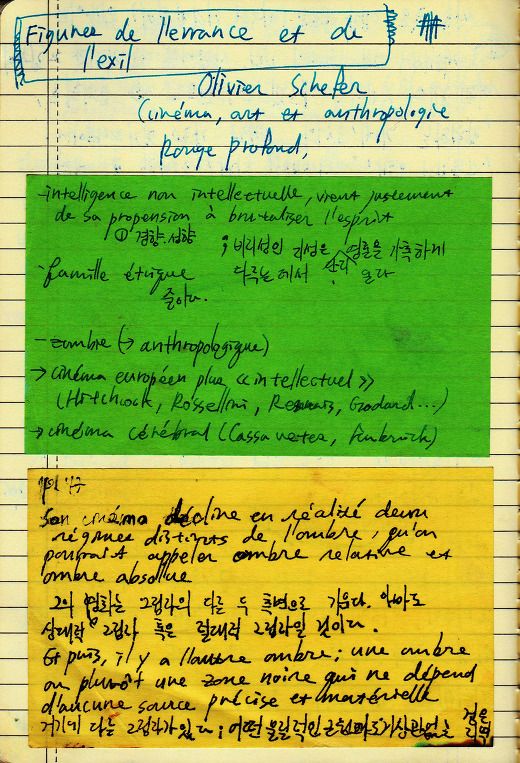 Figures de l'errance et de
l'exil
Olivier Schefer
Cinéma, art et anthropologie
Rouge profond,
- intelligence non intellectuelle, vient justement
de sa propension à brutaliser l'esprit
① 경향.성향
; 비이성인 이성은 영혼을 가혹하게
다루는 데서 온다
- famille étique
졸아다.
- ombre (→ anthropologique)
→ cinéma européen plus «intellectuel»
(Hitchcock, Rossellini, Resnais, Godard...)
→ cinéma cérébral (Cassavetes, )
Son cinéma décline en réalité deux
régimes distincts de l'ombre, qu'on
pourrait appeler ombre relative et
ombre absolue
그의 영화는 그림자의 다른 두 측면으로 기운다. 아마도
상대적 그림자 혹은 절대적 그림자일 것이다.
Et puis, il y a l'autre ombre; une ombre
ou plutôt une zone noire qui ne dépend
d'aucune source précise et matérielle
거기에 다른 그림자가 있다; 어떤 물질적인 상관없는
검은